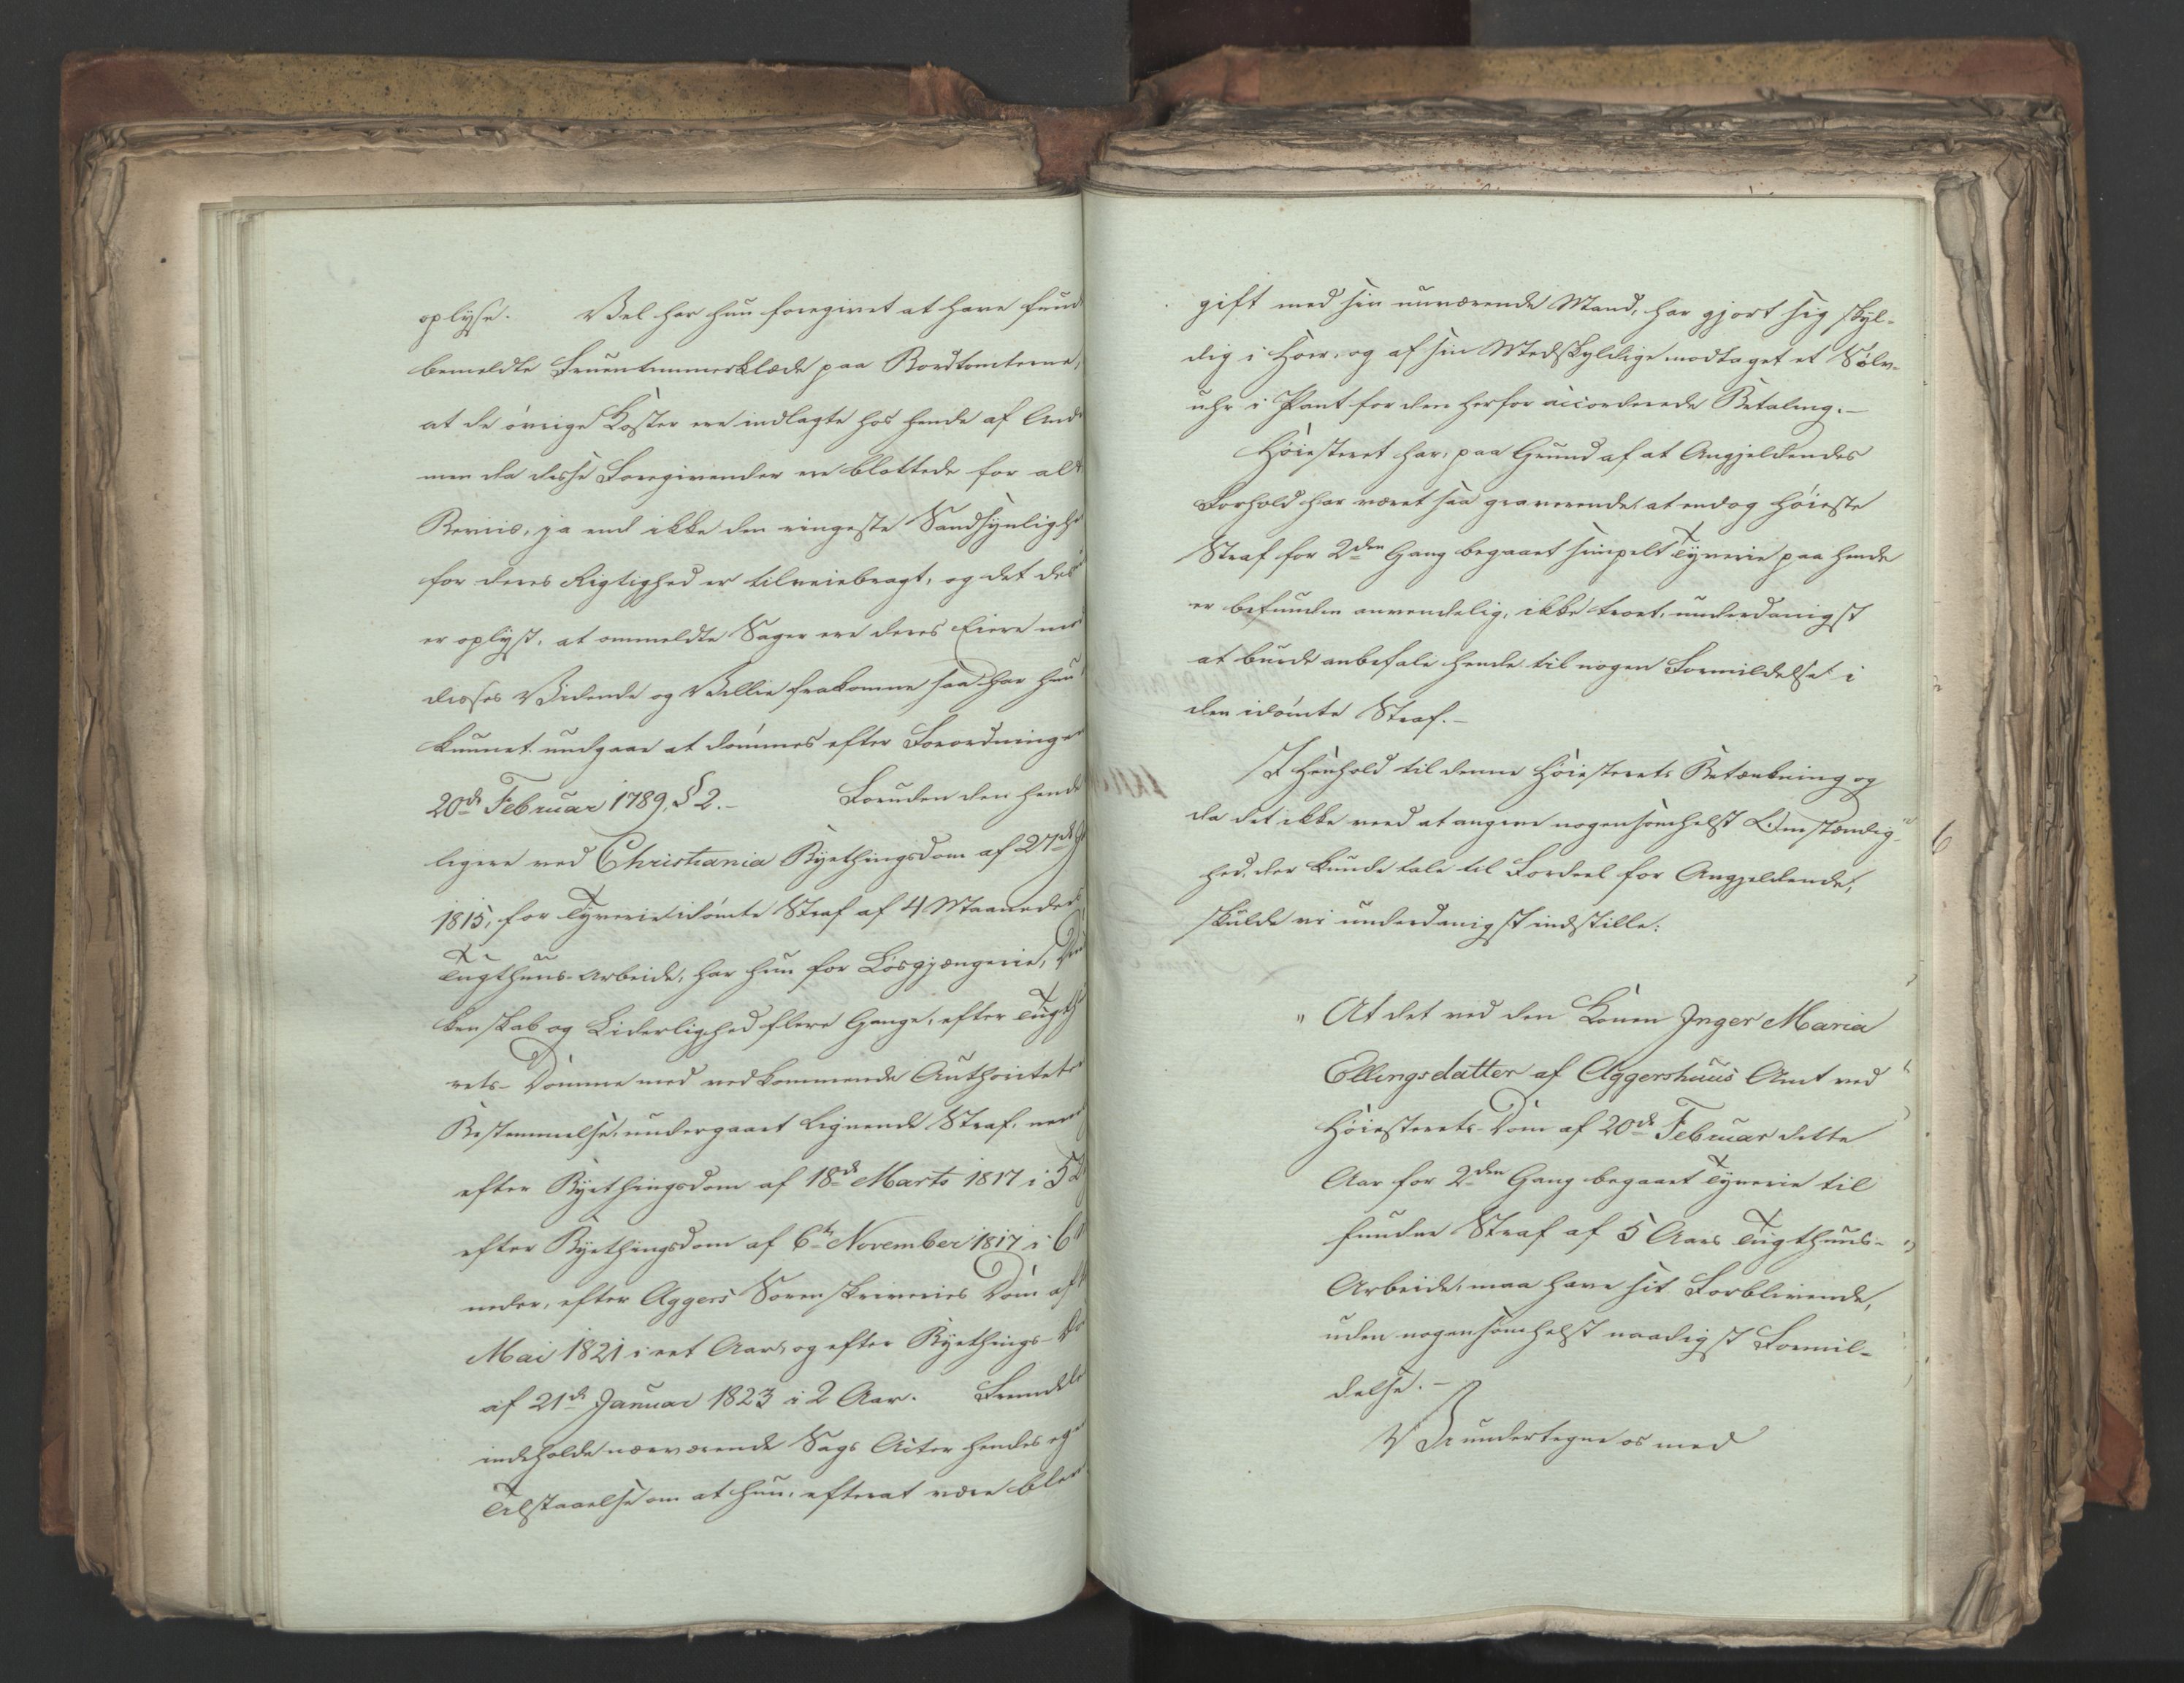 oplyse. Vel har hun foregivet at have fund
bemeldte Fruentimmerklæde paa Bordtomterne,
at de øvrige Koster ere indlagte hos hende af And
men da disse Foregivender ere blottede for alt
Beviis, ja end ikke den ringeste Sandsynlighe
for deres Rigtighed er tilveiebragt, og det des
er oplyst, at ommeldte Sager ere deres Eiere mod
disses Vidende og Villie frakomne saa har hun
kunnet undgaae at dømmes efter Forordningen
20de Februar 1789, § 2.- Foruden den hende
ligere ved Christiania Byethingsdom af 27de
1815, for Tyverie idømte Straf af 4 Maaneders
Tugthuus-Arbeide, har hun for Løsgjængerie, Dru
kenskab og Liderlighed flere Gange, efter Tugth
rets-Domme med vedkommende Authoritets
Bestemmelse, undergaaet Lignende Straf, nem
efter Byethingsdom af 18de Marts 1817 i 5
efter Byethingsdom af 6te November 1817 i 6
neder, efter Aggers Sorenskriveries Dom af
Mai 1821 i eet Aar, og efter Byethings-Do
af 21de Januar 1823 i 2 Aar. Fremdele
indeholde nærværende Sags Acter hendes eg
Tilstaaelse om at hun, efterat være blev
gift med sin nuværende Mand, har gjort sig skyl-
dig i Hoer, og af sin Medskyldige modtaget et Sølv-
uhr i Pant for den herfor accorderede Betaling.-
Høiesteret har, paa Grund af at Angjeldendes
Forhold har været saa graverende, at endog høieste
Straf for 2den Gang begaaet simpelt Tyverie paa hende
er befunden anvendelig, ikke troet, underdanigst
at burde anbefale hende til nogen Formildelse i
den idømte Straf.-
I Henhold til denne Høiesterets Betænkning og
da det ikke veed at angive nogensomhelst Omstændig-
hed, der kunde tale til Fordeel for Angjeldende,
skulde vi underdanigst indstille:
" At det ved den Konen Inger Maria
Ellingsdatter af Aggershuus Amt ved
Høiesterets-Dom af 20de Februar dette
Aar for 2den Gang begaaet Tyverie til
fundne Straf af 5 Aars Tugthuus-
Arbeide, maa have sit Forblivende,
uden nogensomhelst naadigst Formil-
delse.-
Vi undertegne os med